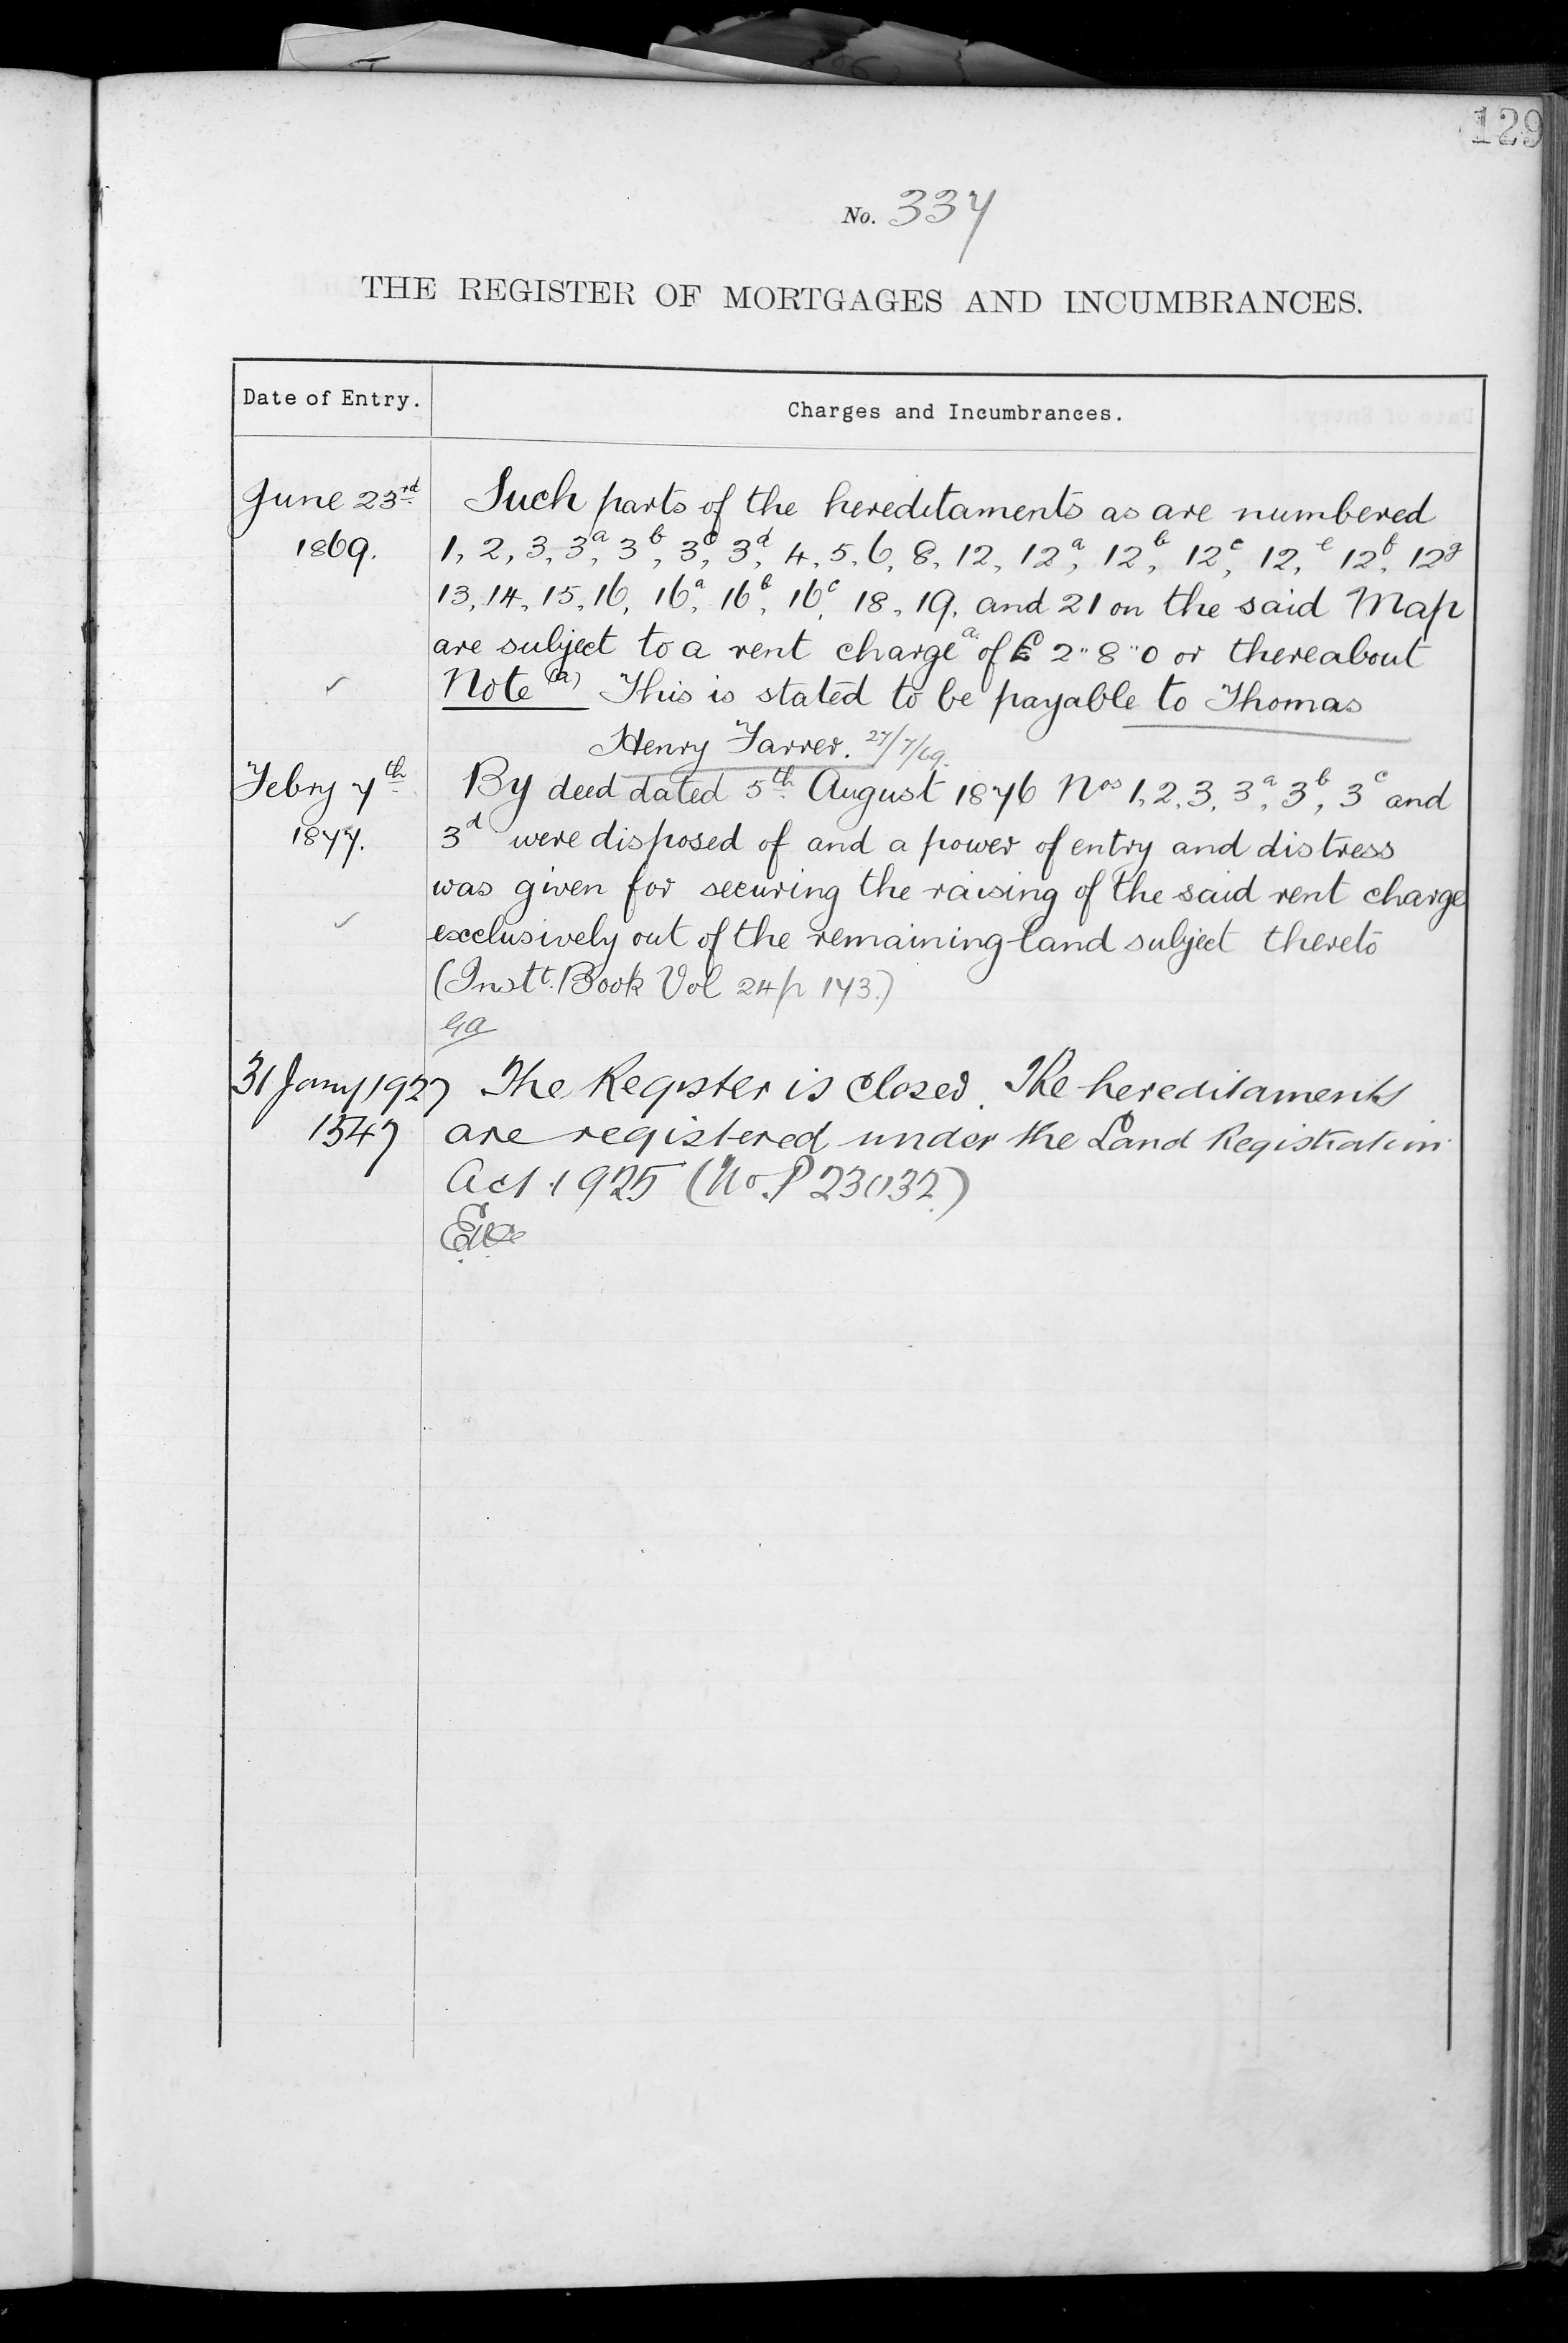 129
No. 337
THE REGISTER OF MORTGAGES AND INCUMBRANCES.
Date of Entry.
Charges and Incumbrances.
June 23rd
1869.
Such parts of the hereditaments as are numbered
1, 2, 3, 3a, 3b, 3c, 3d, 4, 5, 6, 8, 12, 12a, 12b, 12c, 12, e 12f, 12g
13, 14, 15, 16, 16a, 16b, 16c, 18, 19, and 21 on the said Map
are subject to a rent charge a of £ 2"8"0 or thereabout
Note (a) This is stated to be payable to Thomas
Henry Farrer. 27/7/69.
Febry 7th
1877.
By deed dated 5th August 1876 Nos 1, 2, 3, 3a, 3b, 3c and
3d were disposed of and a power of entry and distress
was given for securing the raising of the said rent charge
exclusively out of the remaining land subject thereto
(Instt. Book Vol 24 p 173.)
31 Jany 1927
1547
The Register is closed. The hereditaments
are registered under the Land Registration
Act 1925 (No. P 23032.)